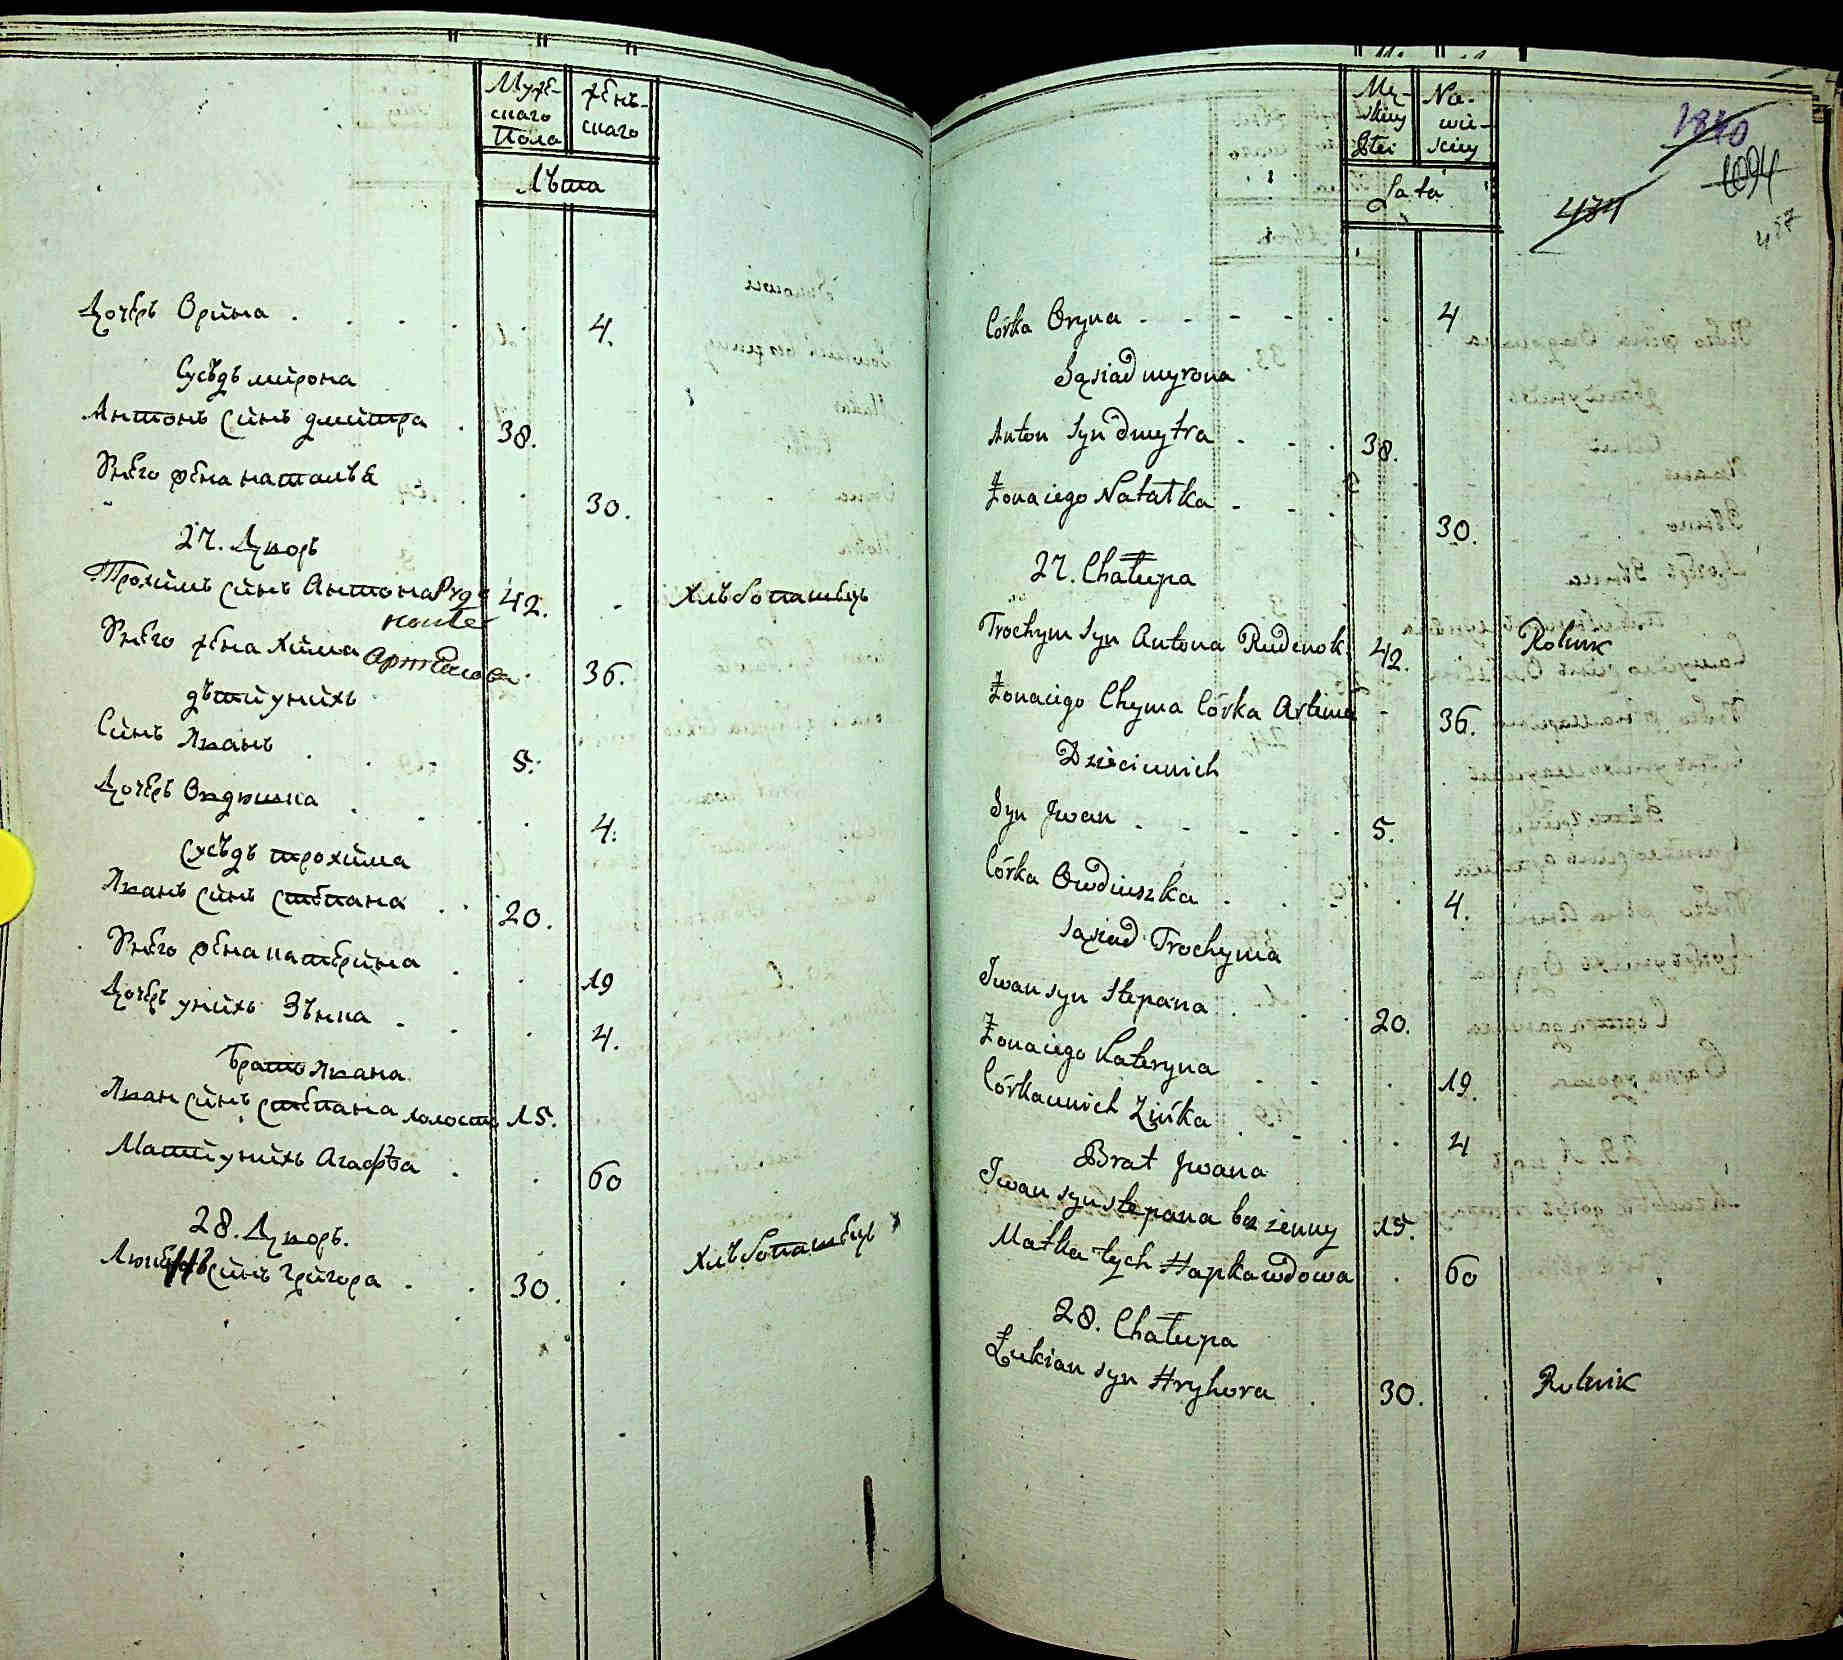 Мужe-
скаго
Пола
женъ-
скаго
Лѣта
Дочерь Орина . . . . 4.
Сусѣдъ мирона
Антонъ синъ дмитра . 38.
Унего жена наталъка . 30.
27. Дворъ
Трохимъ синъ Антона Руде 42. . Хлѣбопашецъ
нокъ
Унего жена Хима Артемова . 36.
дѣти унихъ
Синъ Иванъ . . 5.
Дочерь Овдюшка . . . . 4.
сусѣдъ трохима
Иванъ синъ степана . . 20.
Унего жена катерина . . 19
Дочерь унихъ Зѣнка . . . 4.
Братъ Ивана
Иван синъ степана холостъ 15.
Мати унихъ Агафѣа . . 60
28. Дворъ.
синъ Григора . . 30. . Хлѣбопашецъ
Mę-
skiey
Płci
Na-
wie-
skiey
Lata
1840
1094
434
457
Córka Oryna - - - - - . 4
Sąsiad myrona
Anton Syn dmytra - - . 38.
Żona iego Natałka - - . . 30.
27. Chałupa
Trochym Syn Antona Rudenok. 42. Rolnik
Żona iego Chyma Córka Artema - 36.
Dzieci u nich
Syn Jwan - - - . . 5.
Córka Owdiuszka . . - . 4.
Sąsiad Trochyma
Jwan syn Stepana . . . 20.
Żona iego Kateryna . - . 19.
Córka u nich Zińka . - . . 4
Brat Jwana
Jwan syn stepana bezżenny 15.
Matka tych Hapka wdowa . 60
28. Chałupa
Łukian syn Hryhora . 30. . Rolnik